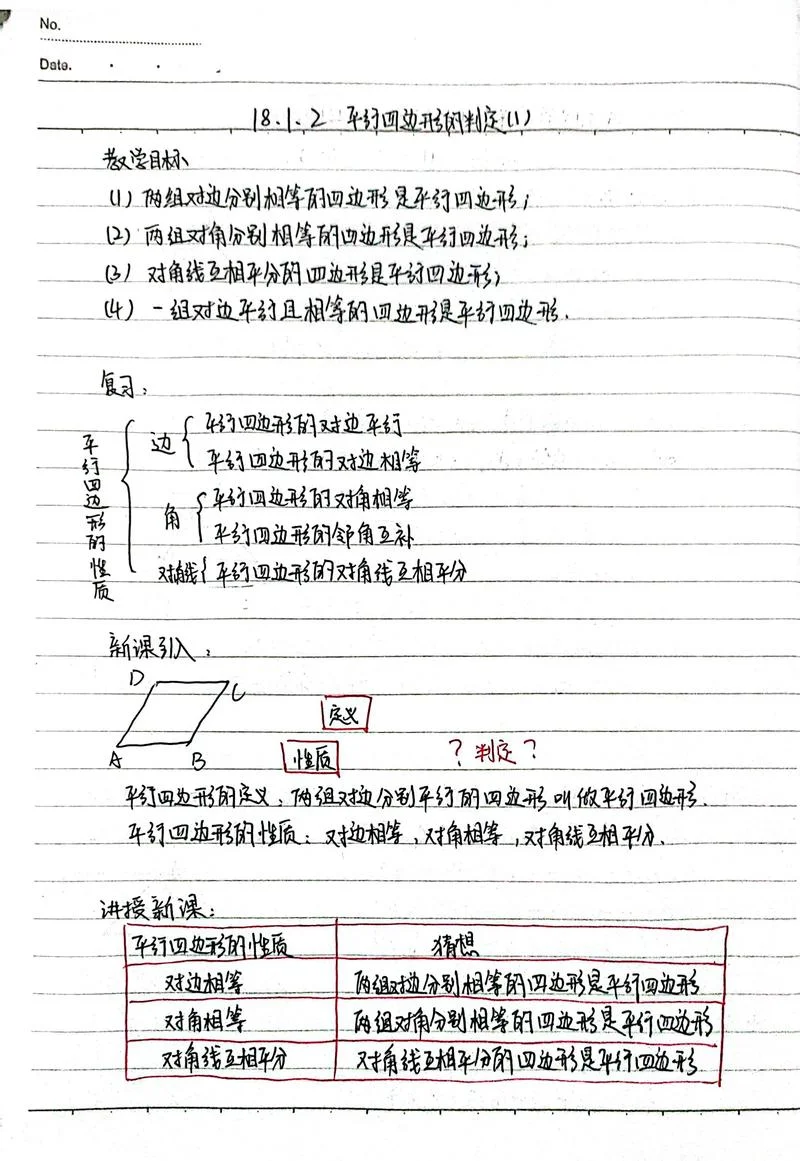 No.
Date.
18.1.2 平行四边形的判定(1)
教学目标
(1) 两组对边分别相等的四边形是平行四边形;
(2) 两组对角分别相等的四边形是平行四边形;
(3) 对角线互相平分的四边形是平行四边形;
(4) 一组对边平行且相等的四边形是平行四边形.
复习:
平行四边形的性质
边
平行四边形的对边平行
平行四边形的对边相等
角
平行四边形的对角相等
平行四边形的邻角互补
对角线
平行四边形的对角线互相平分
新课引入:
D C
A B
定义
性质 ?判定?
平行四边形的定义:两组对边分别平行的四边形叫做平行四边形.
平行四边形的性质:对边相等,对角相等,对角线互相平分.
讲授新课:
平行四边形的性质 猜想
对边相等 两组对边分别相等的四边形是平行四边形
对角相等 两组对角分别相等的四边形是平行四边形
对角线互相平分 对角线互相平分的四边形是平行四边形